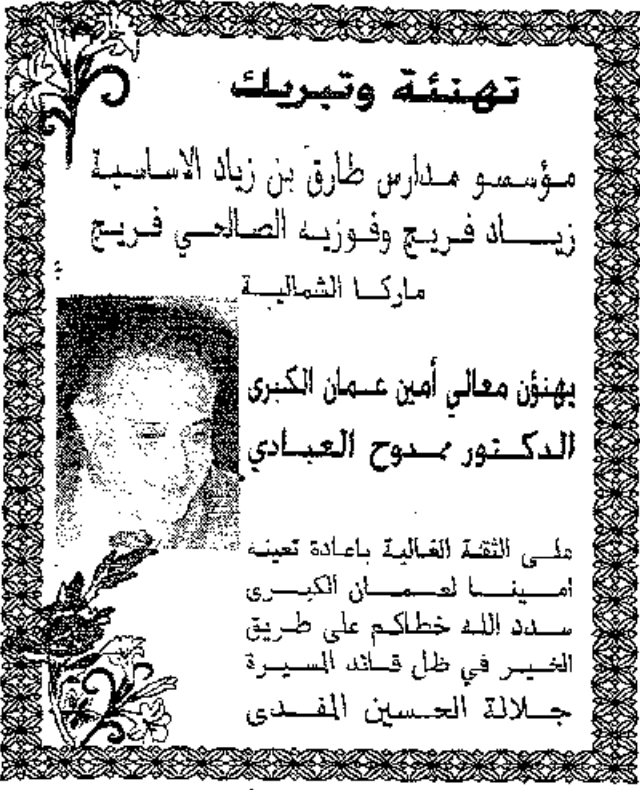 تهنئة وتبريك
مؤسسو مدارس طارق بن زياد الاساسية
زيـــاد فـريـج وفـوزيـه الصـالحـي فـريـج
ماركـا الشماليـة
يهنؤن معالي أمين عـمان الكبرى
الدكـتور ممـدوح العـبـادي
علـى الثقـة الغـاليـة باعـادة تعيينـه
امـيـنـا لعـمـان الكبـرى
سـدد اللـه خطـاكـم على طـريق
الخيـر في ظل قـائد المسيـرة
جـلالة الحـسـين المفـدى